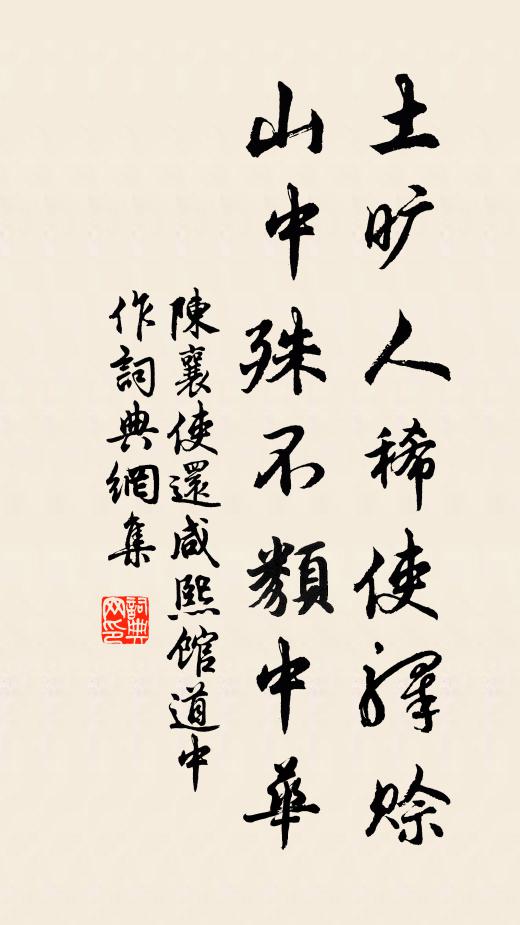 土旷人稀使驛賒
山中殊不類中華
陳襄使還咸熙館道中
作詞典網集
詞典网印